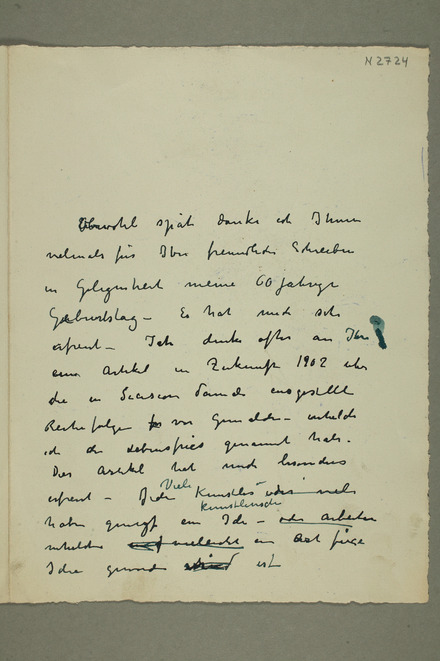 N 2724
Obwohl spät danke ich Ihnen
vielmals für Ihr freundliche Schreiben
in Geligenheit meine 60 jahrige
Geburtstag – Es hat mich sehr
efreut – Ich denke ofter an Ihre
eine Artikel in Zukunft 1902 uber
die in Secession damals ausgestellte
Reihefolgen von Gemalde – welche
ich de Lebensfries genannt habe.
Dies Artikel hat mich besonders
efreut – Viele Kunstler oder viele
kunstlerische
haben gehabt ein Ide – oder arbeiten
welche vielleicht ein Art fixe
Idee geworden ist